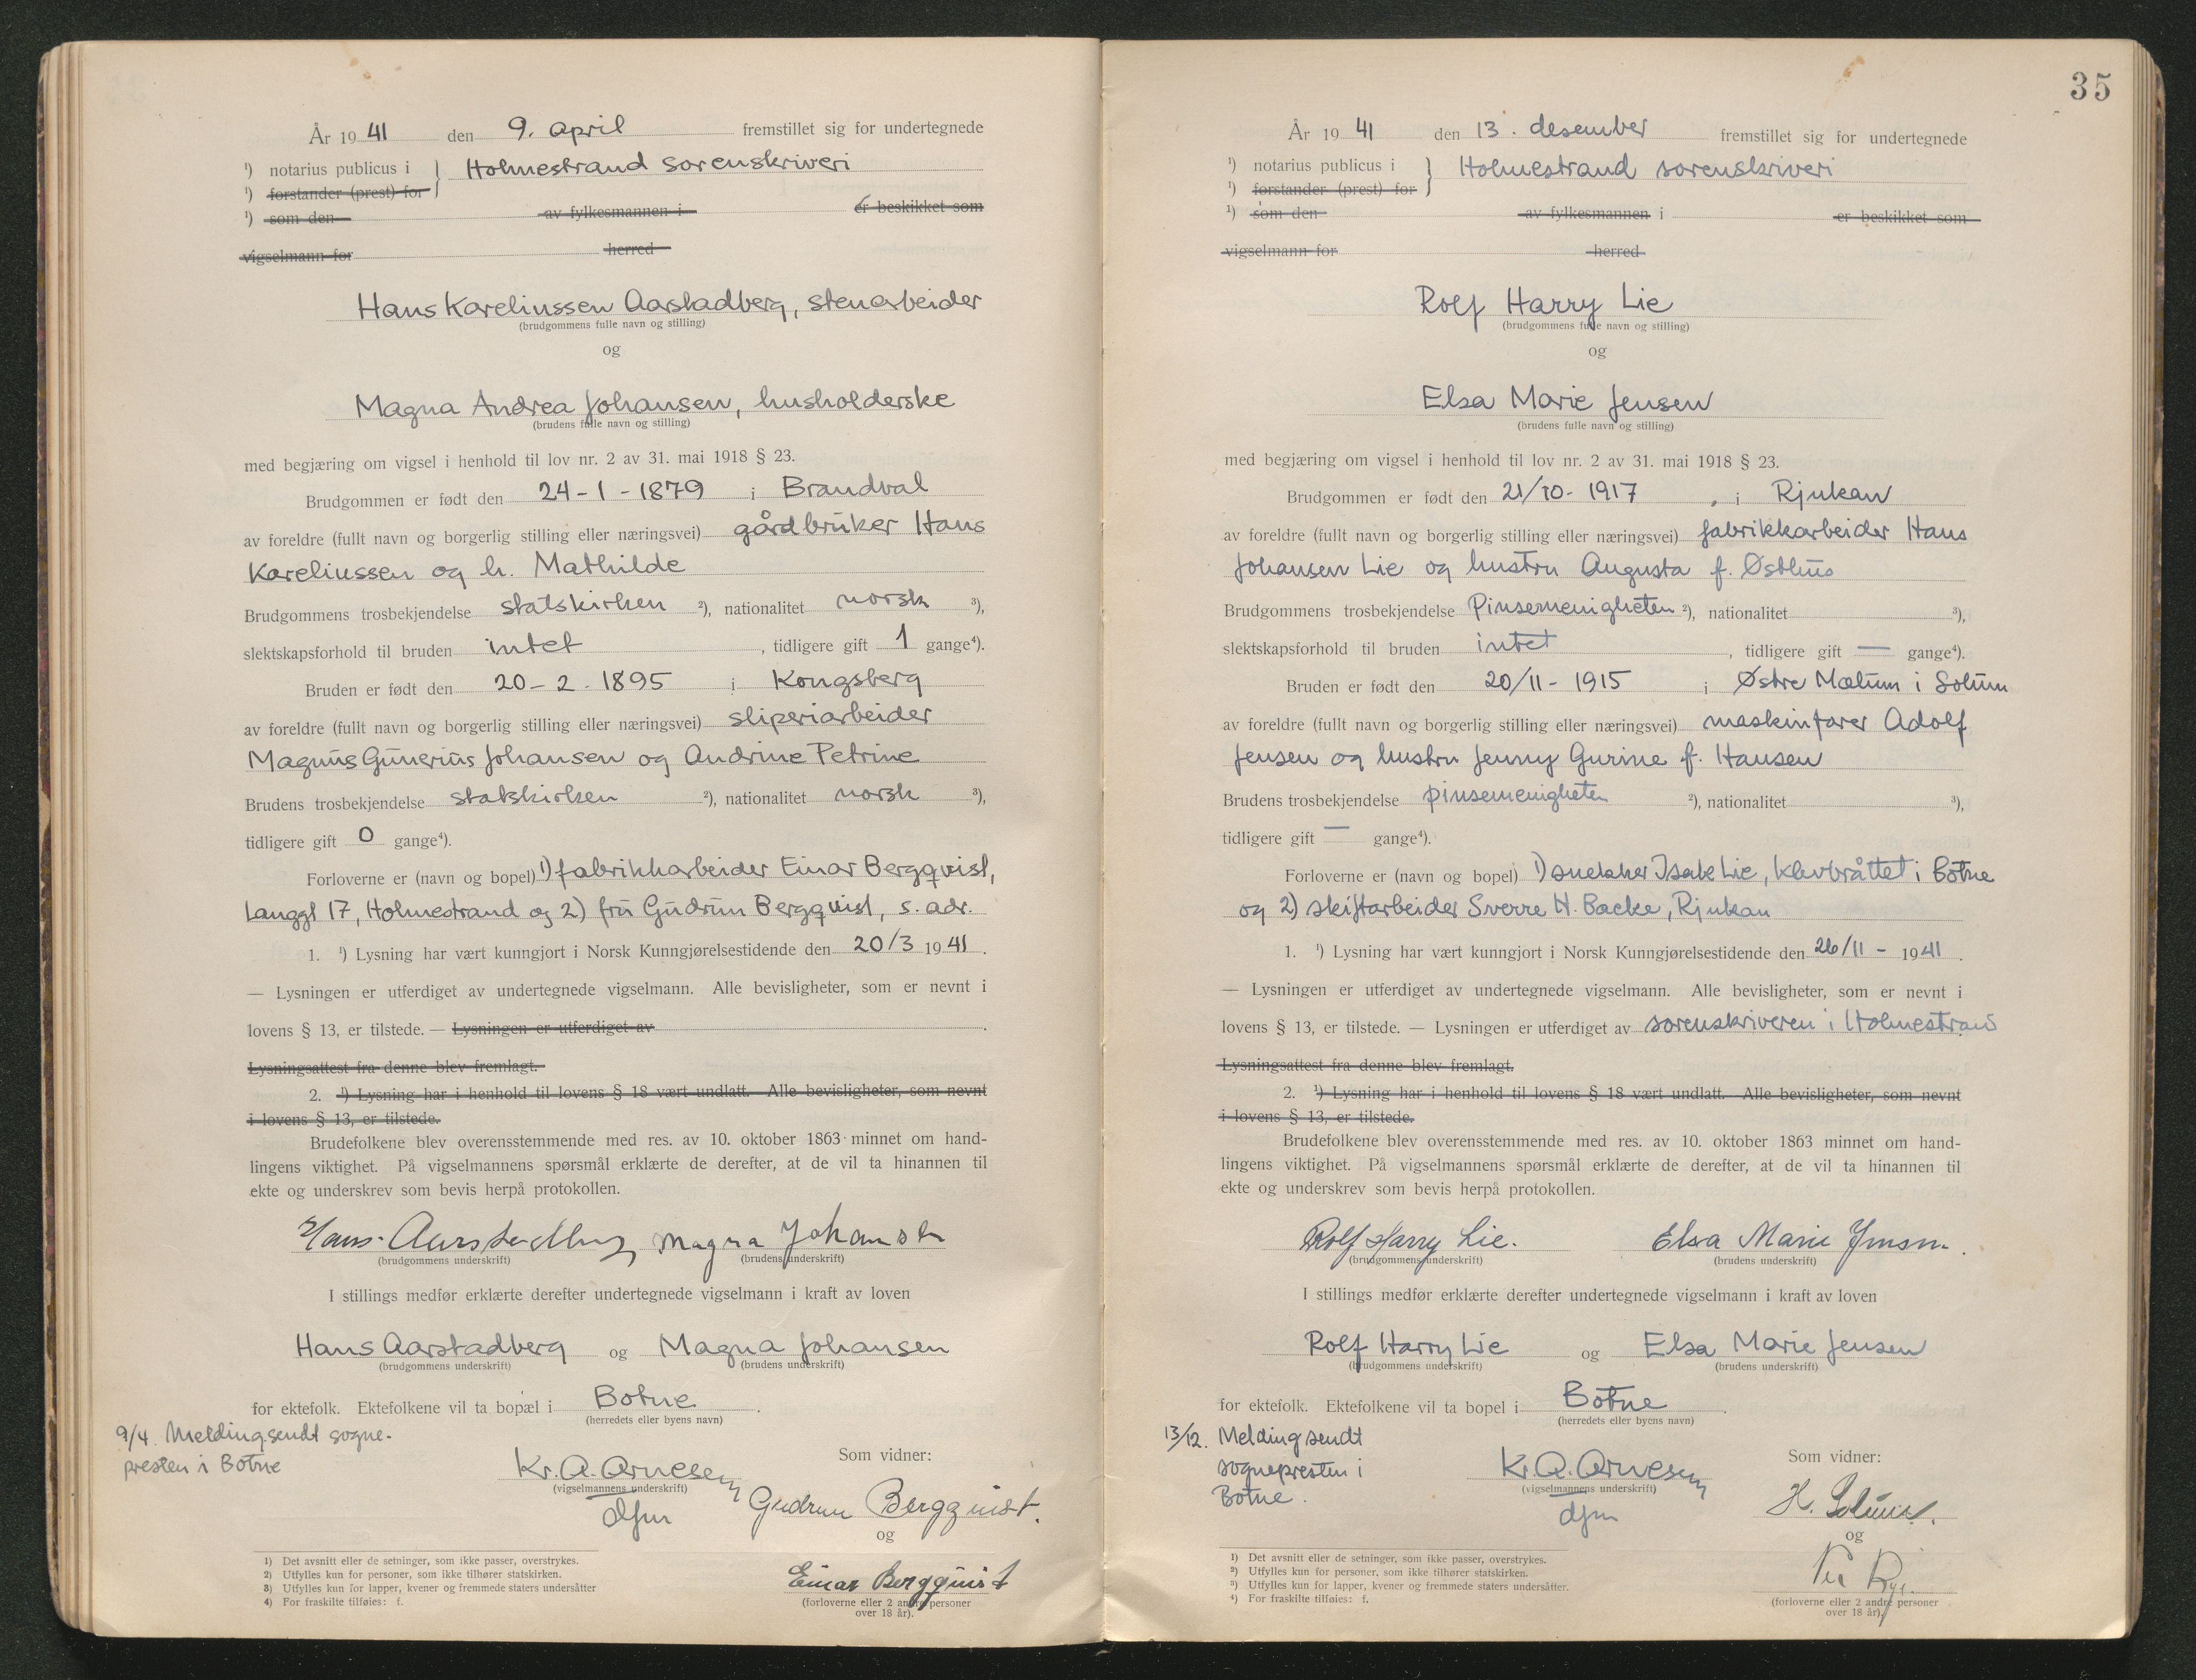 År 19 41 den 9. april fremstillet sig for undertegnede
¹) notarius publicus i } Holmestrand sorenskriveri
¹) forstander (prest) for
¹) som den av fylkesmannen i er beskikket som
vigselmann for herred
Hans Kareliussen Aarstadberg, stenarbeider
(brudgommens fulle navn og stilling)
og
Magna Andrea Johansen, husholderske
(brudens fulle navn og stilling)
med begjæring om vigsel i henhold til lov nr. 2 av 31. mai 1918 § 23.
Brudgommen er født den 24-1-1879 i Brandval
av foreldre (fullt navn og borgerlig stilling eller næringsvei) gårdbruker Hans
Kareliussen og h. Mathilde
Brudgommens trosbekjendelse statskirken ²), nationalitet norsk ³),
slektskapsforhold til bruden intet, tidligere gift 1 gange⁴).
Bruden er født den 20-2-1895 i Kongsberg
av foreldre (fullt navn og borgerlig stilling eller næringsvei) sliperiarbeider
Magnus Gunerius Johansen og Andrine Petrine
Brudens trosbekjendelse statskirken ²), nationalitet norsk ³),
tidligere gift 0 gange⁴).
Forloverne er (navn og bopel) 1) fabrikkarbeider Einar Bergqvist,
Langgt 17, Holmestrand og 2) fru Gudrun Bergqvist, s. adr.
1. ¹) Lysning har vært kunngjort i Norsk Kunngjørelsestidende den 20/3 1941.
— Lysningen er utferdiget av undertegnede vigselmann. Alle bevisligheter, som er nevnt i
lovens § 13, er tilstede. — Lysningen er utferdiget av .
Lysningsattest fra denne blev fremlagt.
2. ¹) Lysning har i henhold til lovens § 18 vært undlatt. Alle bevisligheter, som nevnt
i lovens § 13, er tilstede.
Brudefolkene blev overensstemmende med res. av 10. oktober 1863 minnet om hand-
lingens viktighet. På vigselmannens spørsmål erklærte de derefter, at de vil ta hinannen til
ekte og underskrev som bevis herpå protokollen.
Hans Aarstadberg Magna Johansen
(brudgommens underskrift) (brudens underskrift)
I stillings medfør erklærte derefter undertegnede vigselmann i kraft av loven
Hans Aarstadberg og Magna Johansen
(brudgommens underskrift) (brudens underskrift)
for ektefolk. Ektefolkene vil ta bopæl i Botne.
(herredets eller byens navn)
9/4. Melding sendt sogne-
presten i Botne
Som vidner:
Kr. A. Arnesen
(vigselmannens underskrift)
dfm
Gudrun Bergqvist.
og
Einar Bergquist
(forloverne eller 2 andre personer
over 18 år).
1) Det avsnitt eller de setninger, som ikke passer, overstrykes.
2) Utfylles kun for personer, som ikke tilhører statskirken.
3) Utfylles kun for lapper, kvener og fremmede staters undersåtter
4) For fraskilte tilføies: f.
35
År 19 41 den 13. desember fremstillet sig for undertegnede
¹) notarius publicus i } Holmestrand sorenskriveri
¹) forstander (prest) for
¹) som den av fylkesmannen i er beskikket som
vigselmann for herred
Rolf Harry Lie
(brudgommens fulle navn og stilling)
og
Elsa Marie Jensen
(brudens fulle navn og stilling)
med begjæring om vigsel i henhold til lov nr. 2 av 31. mai 1918 § 23.
Brudgommen er født den 21/10-1917, i Rjukan
av foreldre (fullt navn og borgerlig stilling eller næringsvei) fabrikkarbeider Hans
Johansen Lie og hustru Augusta f. Østhus
Brudgommens trosbekjendelse Pinsemenigheten ²), nationalitet ³),
slektskapsforhold til bruden intet, tidligere gift — gange⁴).
Bruden er født den 20/11-1915 i Østre Mælum i Solum
av foreldre (fullt navn og borgerlig stilling eller næringsvei) maskinfører Adolf
Jensen og hustru Jenny Gurine f. Hansen
Brudens trosbekjendelse pinsemenigheten ²), nationalitet ³),
tidligere gift — gange⁴).
Forloverne er (navn og bopel) 1) snekker Isak Lie, Klevbråttet i Botne
og 2) skiftarbeider Sverre H. Backe, Rjukan
1. ¹) Lysning har vært kunngjort i Norsk Kunngjørelsestidende den 26/11 - 1941.
— Lysningen er utferdiget av undertegnede vigselmann. Alle bevisligheter, som er nevnt i
lovens § 13, er tilstede. — Lysningen er utferdiget av sorenskriveren i Holmestrand
Lysningsattest fra denne blev fremlagt.
2. ¹) Lysning har i henhold til lovens § 18 vært undlatt. Alle bevisligheter, som nevnt
i lovens § 13, er tilstede.
Brudefolkene blev overensstemmende med res. av 10. oktober 1863 minnet om hand-
lingens viktighet. På vigselmannens spørsmål erklærte de derefter, at de vil ta hinannen til
ekte og underskrev som bevis herpå protokollen.
Rolf Harry Lie. Elsa Marie Jensen.
(brudgommens underskrift) (brudens underskrift)
I stillings medfør erklærte derefter undertegnede vigselmann i kraft av loven
Rolf Harry Lie og Elsa Marie Jensen
(brudgommens underskrift) (brudens underskrift)
for ektefolk. Ektefolkene vil ta bopel i Botne.
(herredets eller byens navn)
13/12. Melding sendt
sognepresten i
Botne.
Som vidner:
Kr. A. Arnesen
(vigselmannens underskrift)
dfm
H.
og
(forloverne eller 2 andre personer
over 18 år).
1) Det avsnitt eller de setninger, som ikke passer, overstrykes.
2) Utfylles kun for personer, som ikke tilhører statskirken.
3) Utfylles kun for lapper, kvener og fremmede staters undersåtter.
4) For fraskilte tilføies: f.